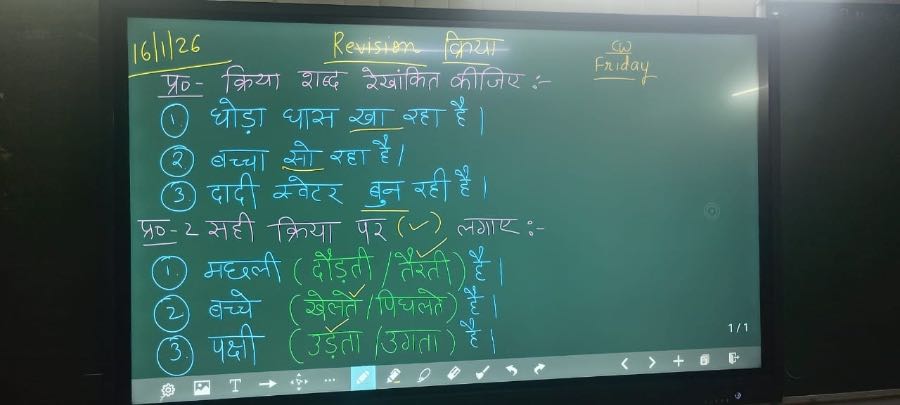 16/1/26 Revision क्रिया CW
Friday
प्र०- क्रिया शब्द रेखांकित कीजिए :-
1. घोड़ा घास खा रहा है।
2. बच्चा सो रहा है।
3. दादी स्वेटर बुन रही है।
प्र०-2 सही क्रिया पर (✓) लगाए :-
1. मछली (दौड़ती / तैरती) है।
2. बच्चे (खेलते / पिघलते) हैं।
3. पक्षी (उड़ता / उगता) है।
1/1
T